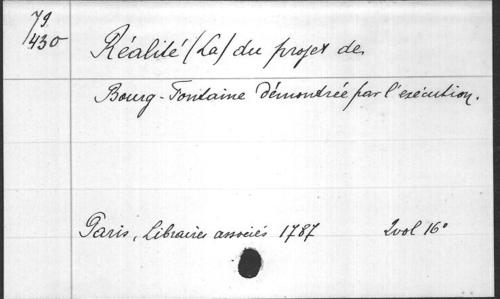 79
430
Réalité (La) du projet de
Bourg-Fontaine démontrée par l'exécution.
Paris, Libraires associés 1787 2vol 16°